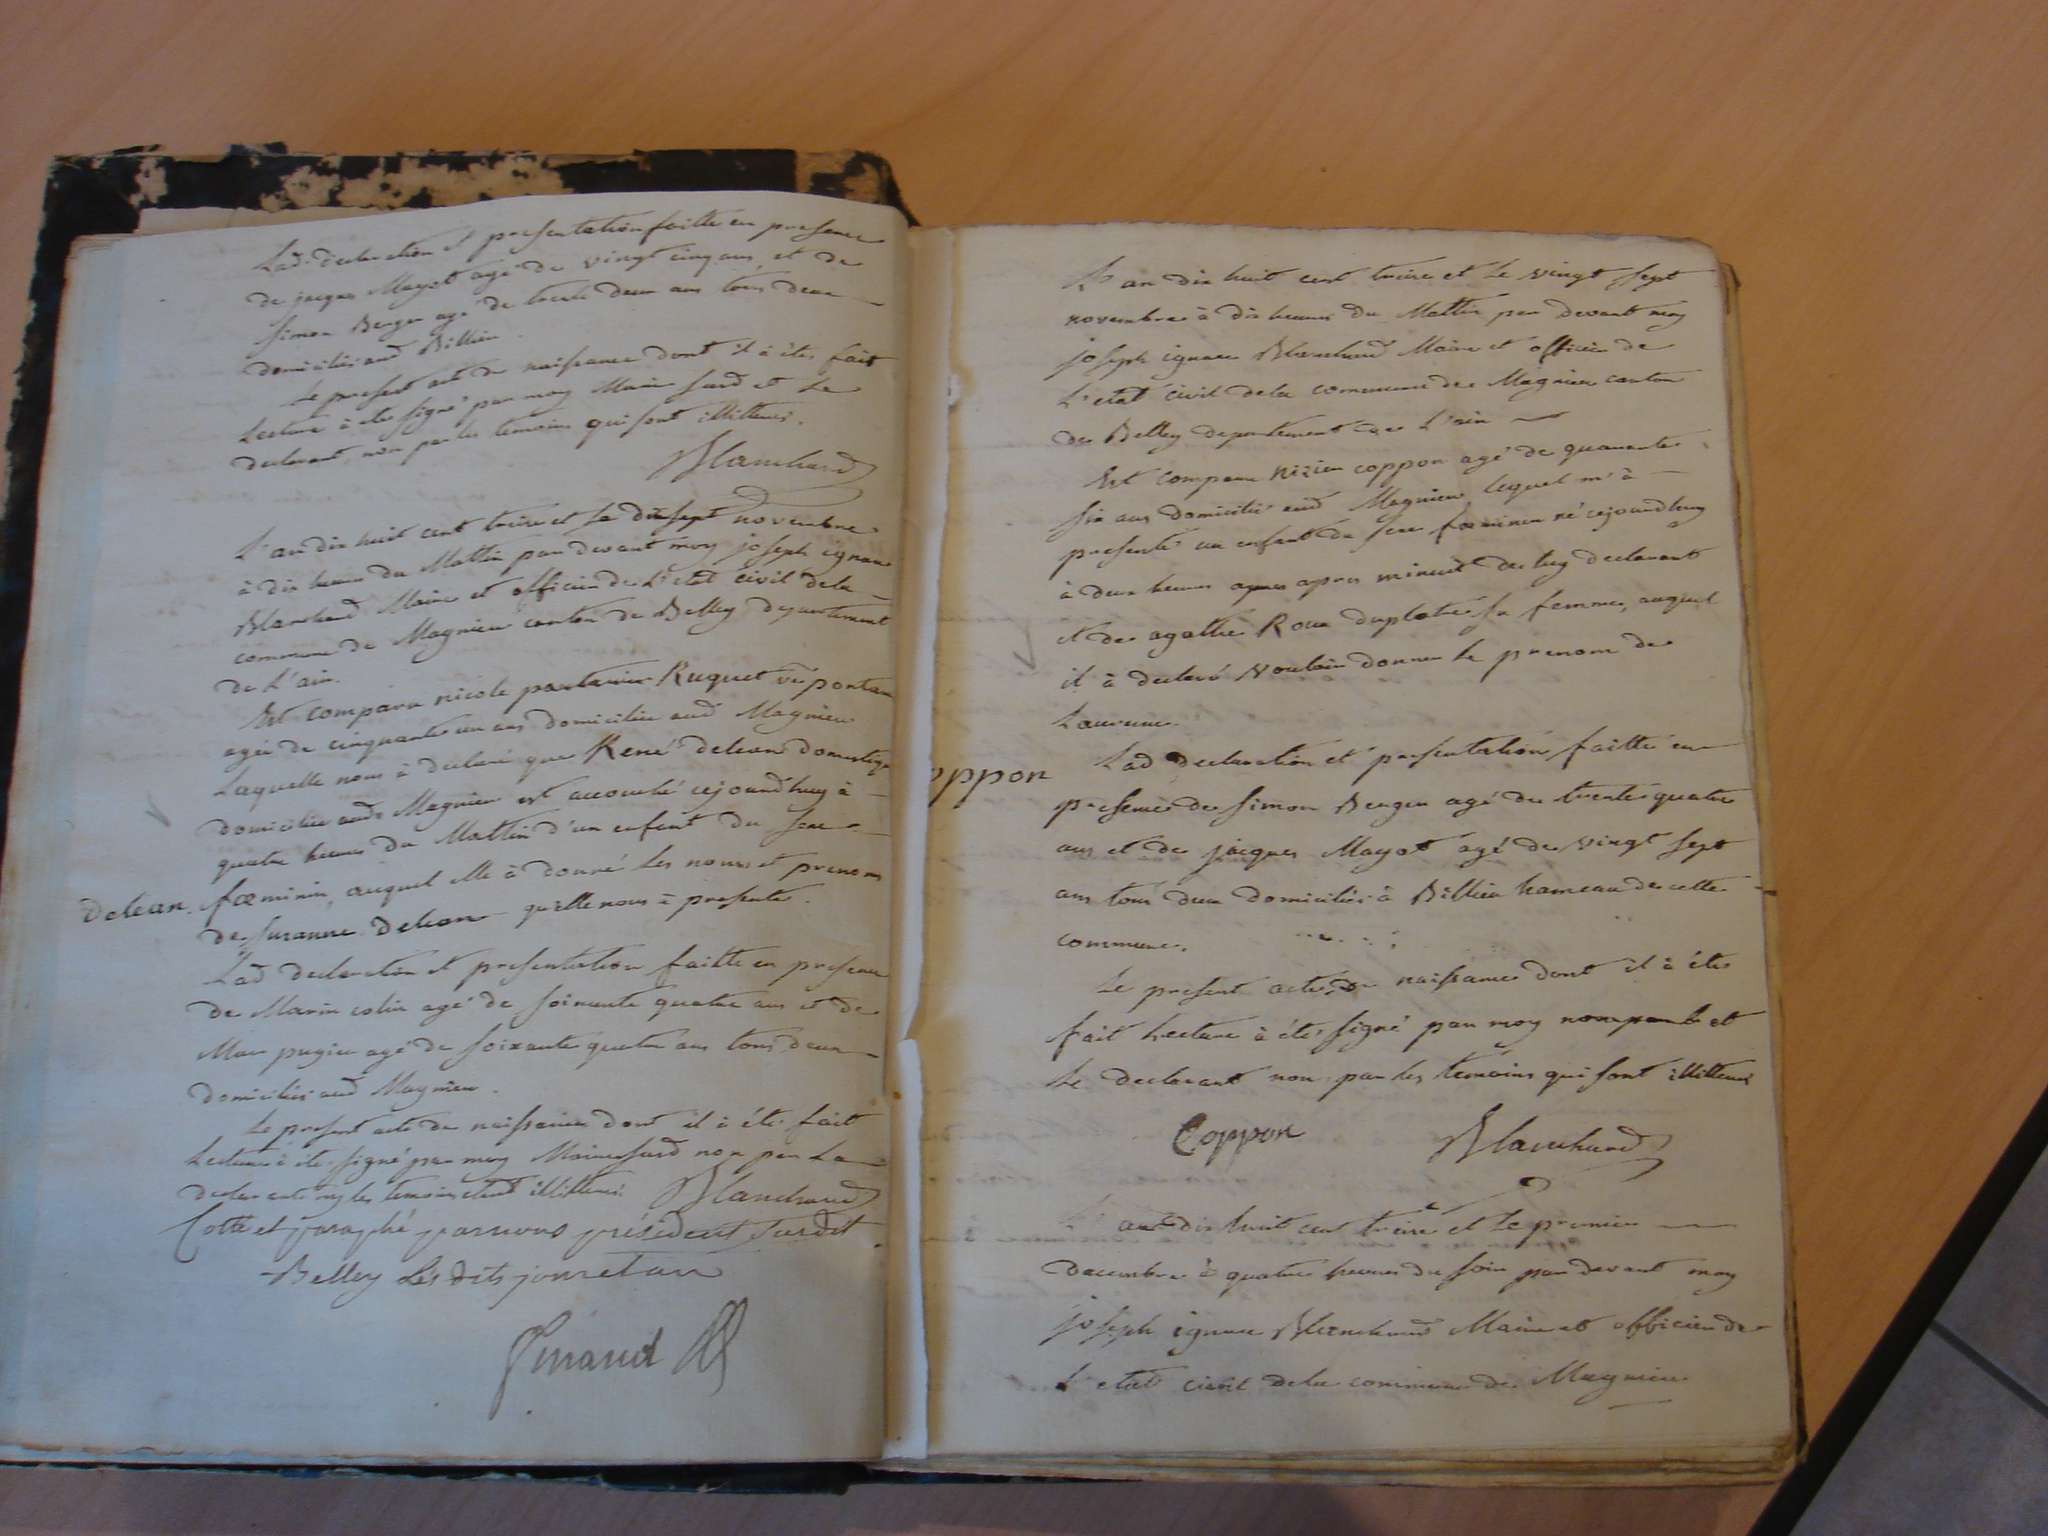 Lad. declaration et presentation faitte en presence
de jacques Mayot agé de vingt cinq ans, et de
Simon Berger agé de trente deux ans tous deux
domiciliés aud Billieu.
Le present acte de naissance dont il à étés fait
Lecture à éte signé par moy Maire susd et le
declarant, non par les temoins qui sont illitterés.
Blanchard
L'an dix huit cent treize et le dixsept novembre
à dix heures du Mattin par devant moy joseph ignace
Blanchard Maire et officier de L'etat civil dela
commune de Magnieu canton de Belley departement
de L'ain.
Est comparu nicole Ruquet
agée de cinquante un ans domiciliée aud Magnieu
Laquelle nous à declaré que René delean domestique
domiciliée aud. Magnieu est accouché cejourdhuy à
quatre heures du Mattin d'un enfent du sexe
delean. fœminin, auquel elle à donné les noms et prenoms
de Suzanne delean qu'elle nous à presenté.
Lad declaration et presentation faitte en presence
de Marin colin agé de soixante quatre ans et de
Marc pugin agé de soixante quatre ans tous deux
domiciliés aud Magnieu.
Le present acte de naissance dont il à été fait
Lecture à éte signé par moy Maire susd non par La
declarante ny les temoins etant illitterés. Blanchard
Cotté et paraphé par nous président susdit
Belley Les dits jour et an
L'an dix huit cent treize et le vingt sept
novembre à dix heures du Mattin par devant moy
joseph ignace Blanchard Maire et officier de
L'etat civil dela commune de Magnieu canton
de Belley departement de L'ain
Est comparu Nizier coppon agé de quarante
six ans domicilié aud Magnieu lequel m'à
presenté un enfant du sexe fœminin né cejourdhuy
à deux heures apres apres minuit de luy declarant
et de agathe Roux duplatre sa femme, auquel
il à declaré vouloir donner le prenom de
Laurence.
oppon Lad declaration et presentation faitte en
presence de Simon Berger agé de trente quatre
ans et de jacques Mayot agé de vingt sept
ans tous deux domiciliés à Billieu hameau de cette
commune.
Le present acte de naissance dont il à étés
fait Lecture à été signé par moy et
Le declarant non par les temoins qui sont illitterés
Coppon Blanchard
L'an dix huit cent treize et le premier
decembre à quatre heures du soir par devant moy
joseph ignace Blanchard Maire et officier de
L'etat civil dela commune de Magnieu